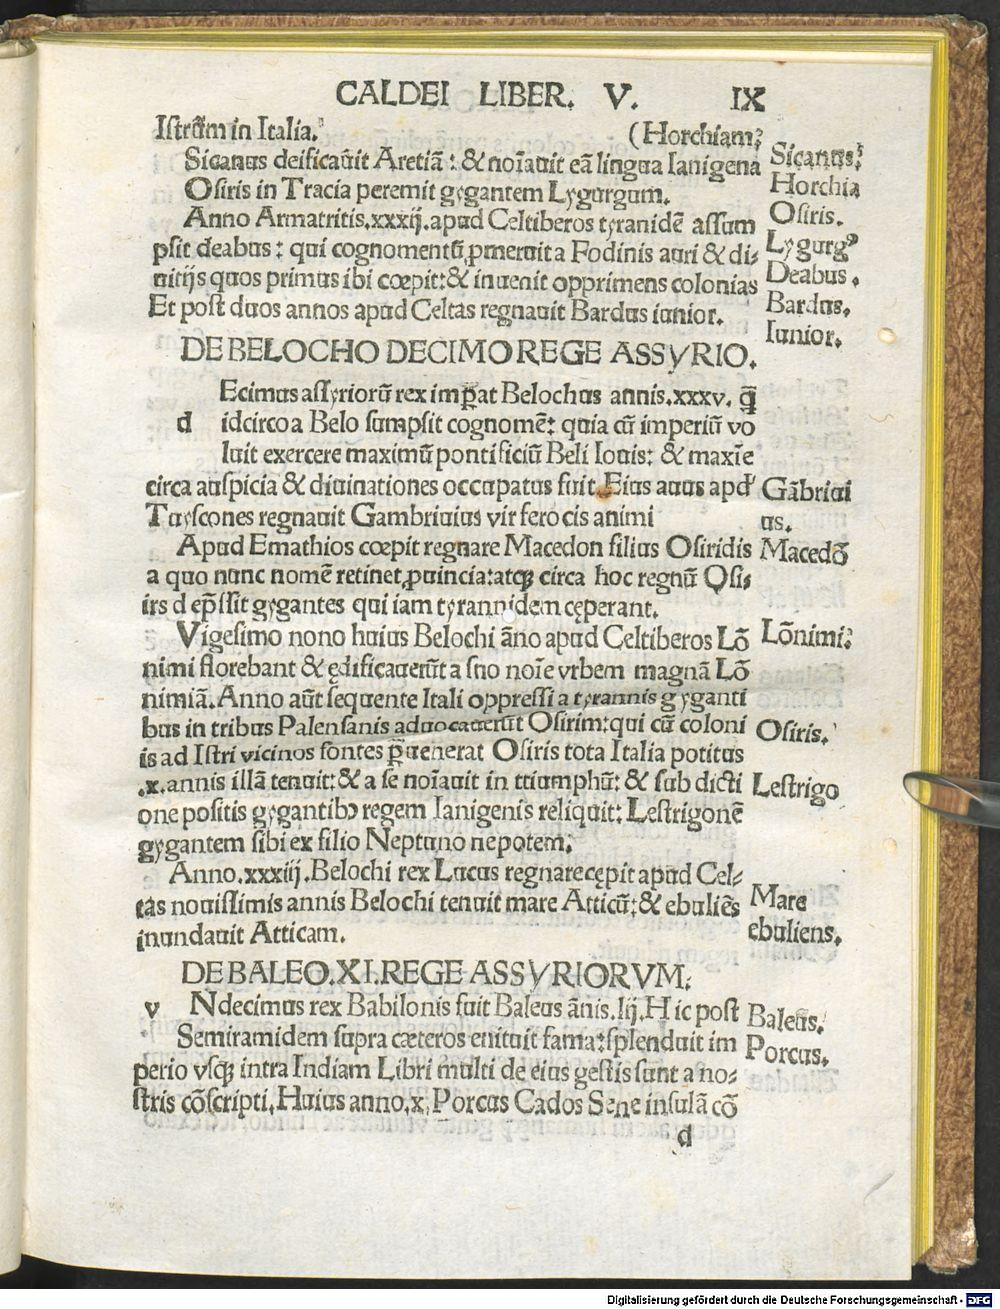 CALDEI LIBER. V. IX
Istrũm in Italia. (Horchiam;
Sicanus deificauit Aretiã: & noĩauit eã lingua Ianigena
Osiris in Tracia peremit gygantem Lygurgum.
Anno Armatritis.xxxij.apud Celtiberos tyranidẽ assum
psit deabus: qui cognomentũ ꝓmeruit a Fodinis auri & di-
uitijs quos primus ibi cœpit:& inuenit opprimens colonias
Et post duos annos apud Celtas regnauit Bardus iunior.
Sicanus;
Horchia
Osiris.
Lygurgꝰ
Deabus.
Bardus.
Iunior.
DE BELOCHO DECIMO REGE ASSyRIO.
d Ecimus assyriorũ rex imꝑat Belochus annis.xxxv. q̃
idcirco a Belo sumpsit cognomẽ: quia cũ imperiũ vo
luit exercere maximũ pontificiũ Beli Iouis: & maxĩe
circa auspicia & diuinationes occupatus fuit. Eius auus apd'
Tuyscones regnauit Gambriuius vir ferocis animi
Gãbriui
us.
Apud Emathios cœpit regnare Macedon filius Osiridis
a quo nunc nomẽ retinet ꝓuincia:atqꝫ circa hoc regnũ Osi-
irs d ep̃ssit gygantes qui iam tyrannidem cęperant.
Macedõ
Vigesimo nono huius Belochi ãno apud Celtiberos Lõ
nimi florebant & ędificauerũt a suo noĩe vrbem magnã Lõ
nimiã. Anno aũt sequente Itali oppressi a tyrannis gyganti
bus in tribus Palensanis aduocauerũt Osirim:qui cũ coloni
is ad Istri vicinos fontes ꝑuenerat Osiris tota Italia potitus
.x.annis illã tenuit:& a se noĩauit in triumphũ: & sub dicti
one positis gygantibꝰ regem Ianigenis reliquit: Lestrigonẽ
gygantem sibi ex filio Neptuno nepotem;
Lõnimi;
Osiris.
Lestrigo
Anno.xxxiij.Belochi rex Lucus regnare cępit apud Cel-
tas nouissimis annis Belochi tenuit mare Atticũ:& ebuliẽs
inundauit Atticam.
Mare
ebuliens.
DE BALEO.XI.REGE ASSyRIORVM;
v Ndecimus rex Babilonis fuit Baleus ãnis.lij.Hic post
Semiramidem supra cæteros enituit fama:splenduit im
perio vsqꝫ intra Indiam Libri multi de eius gestis sunt a no-
stris cõscripti. Huius anno.x.Porcus Cados Sene insulã cõ
Baleus.
Porcus.
d
Digitalisierung gefördert durch die Deutsche Forschungsgemeinschaft - DFG